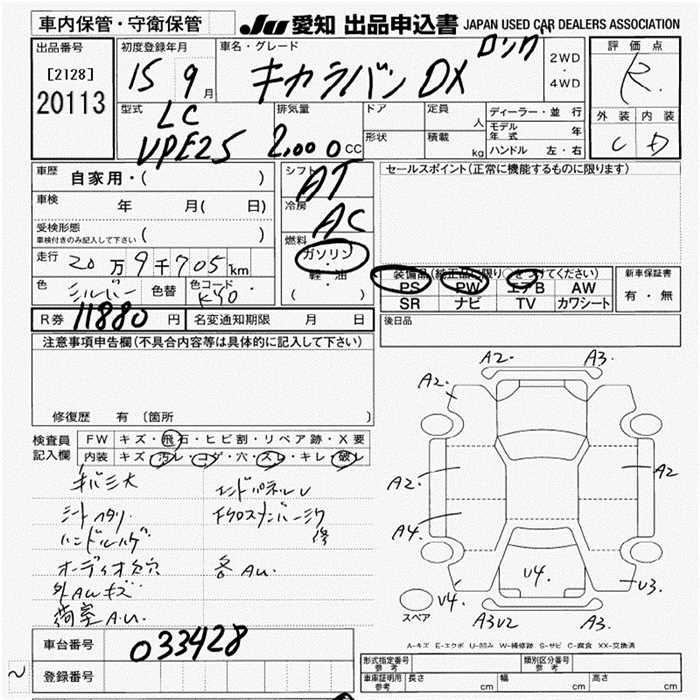 車内保管・守衛保管
JU 愛知 出品申込書 JAPAN USED CAR DEALERS ASSOCIATION
出品番号
[2128]
20113
初度登録年月
15 9月
車名・グレード
キャラバン DX ロング
2WD
・
4WD
評価点
R
外装 内装
C D
型式
LC
VPE25
排気量
2,000 CC
ドア
定員 人
形状
積載 kg
ディーラー・並行
モデル年式 年
ハンドル 左・右
車歴 自家用・( )
車検 年 月( 日)
受検形態 ( )
車検付きのみ記入して下さい
走行 20万9千705km
色 シルバー 色替 色コード KY0
シフト AT
冷房 AC
燃料
ガソリン
・
軽・油
( )
セールスポイント(正常に機能するものに限ります)
装備品(純正品に限り○をつけてください)
PS PW エアB AW
SR ナビ TV カワシート
新車保証書
有・無
R券 11880円 名変通知期限 月 日
後日品
注意事項申告欄(不具合内容等は具体的に記入して下さい)
修復歴 有 〔箇所
検査員
記入欄
FW キズ・飛石・ヒビ割・リペア跡・X要
内装 キズ・汚レ・コゲ・穴・スレ・キレ・破レ
シートヘタリ
ハンドルハゲ
オーディオ欠穴
外AUキズ
荷室A.U.
エンドパネルU
修
各AU.
A2. A3.
A2.
A2. A2
A4.
V4. V4. U3.
スペア
A3V2 A3.
A-キズ E-エクボ U-凹み W-補修跡 S-サビ C-腐食 XX-交換済
車台番号 033428
登録番号
形式指定番号
参考
類別区分番号
参考
車庫証明用
参考
長さ cm 幅 cm 高さ cm